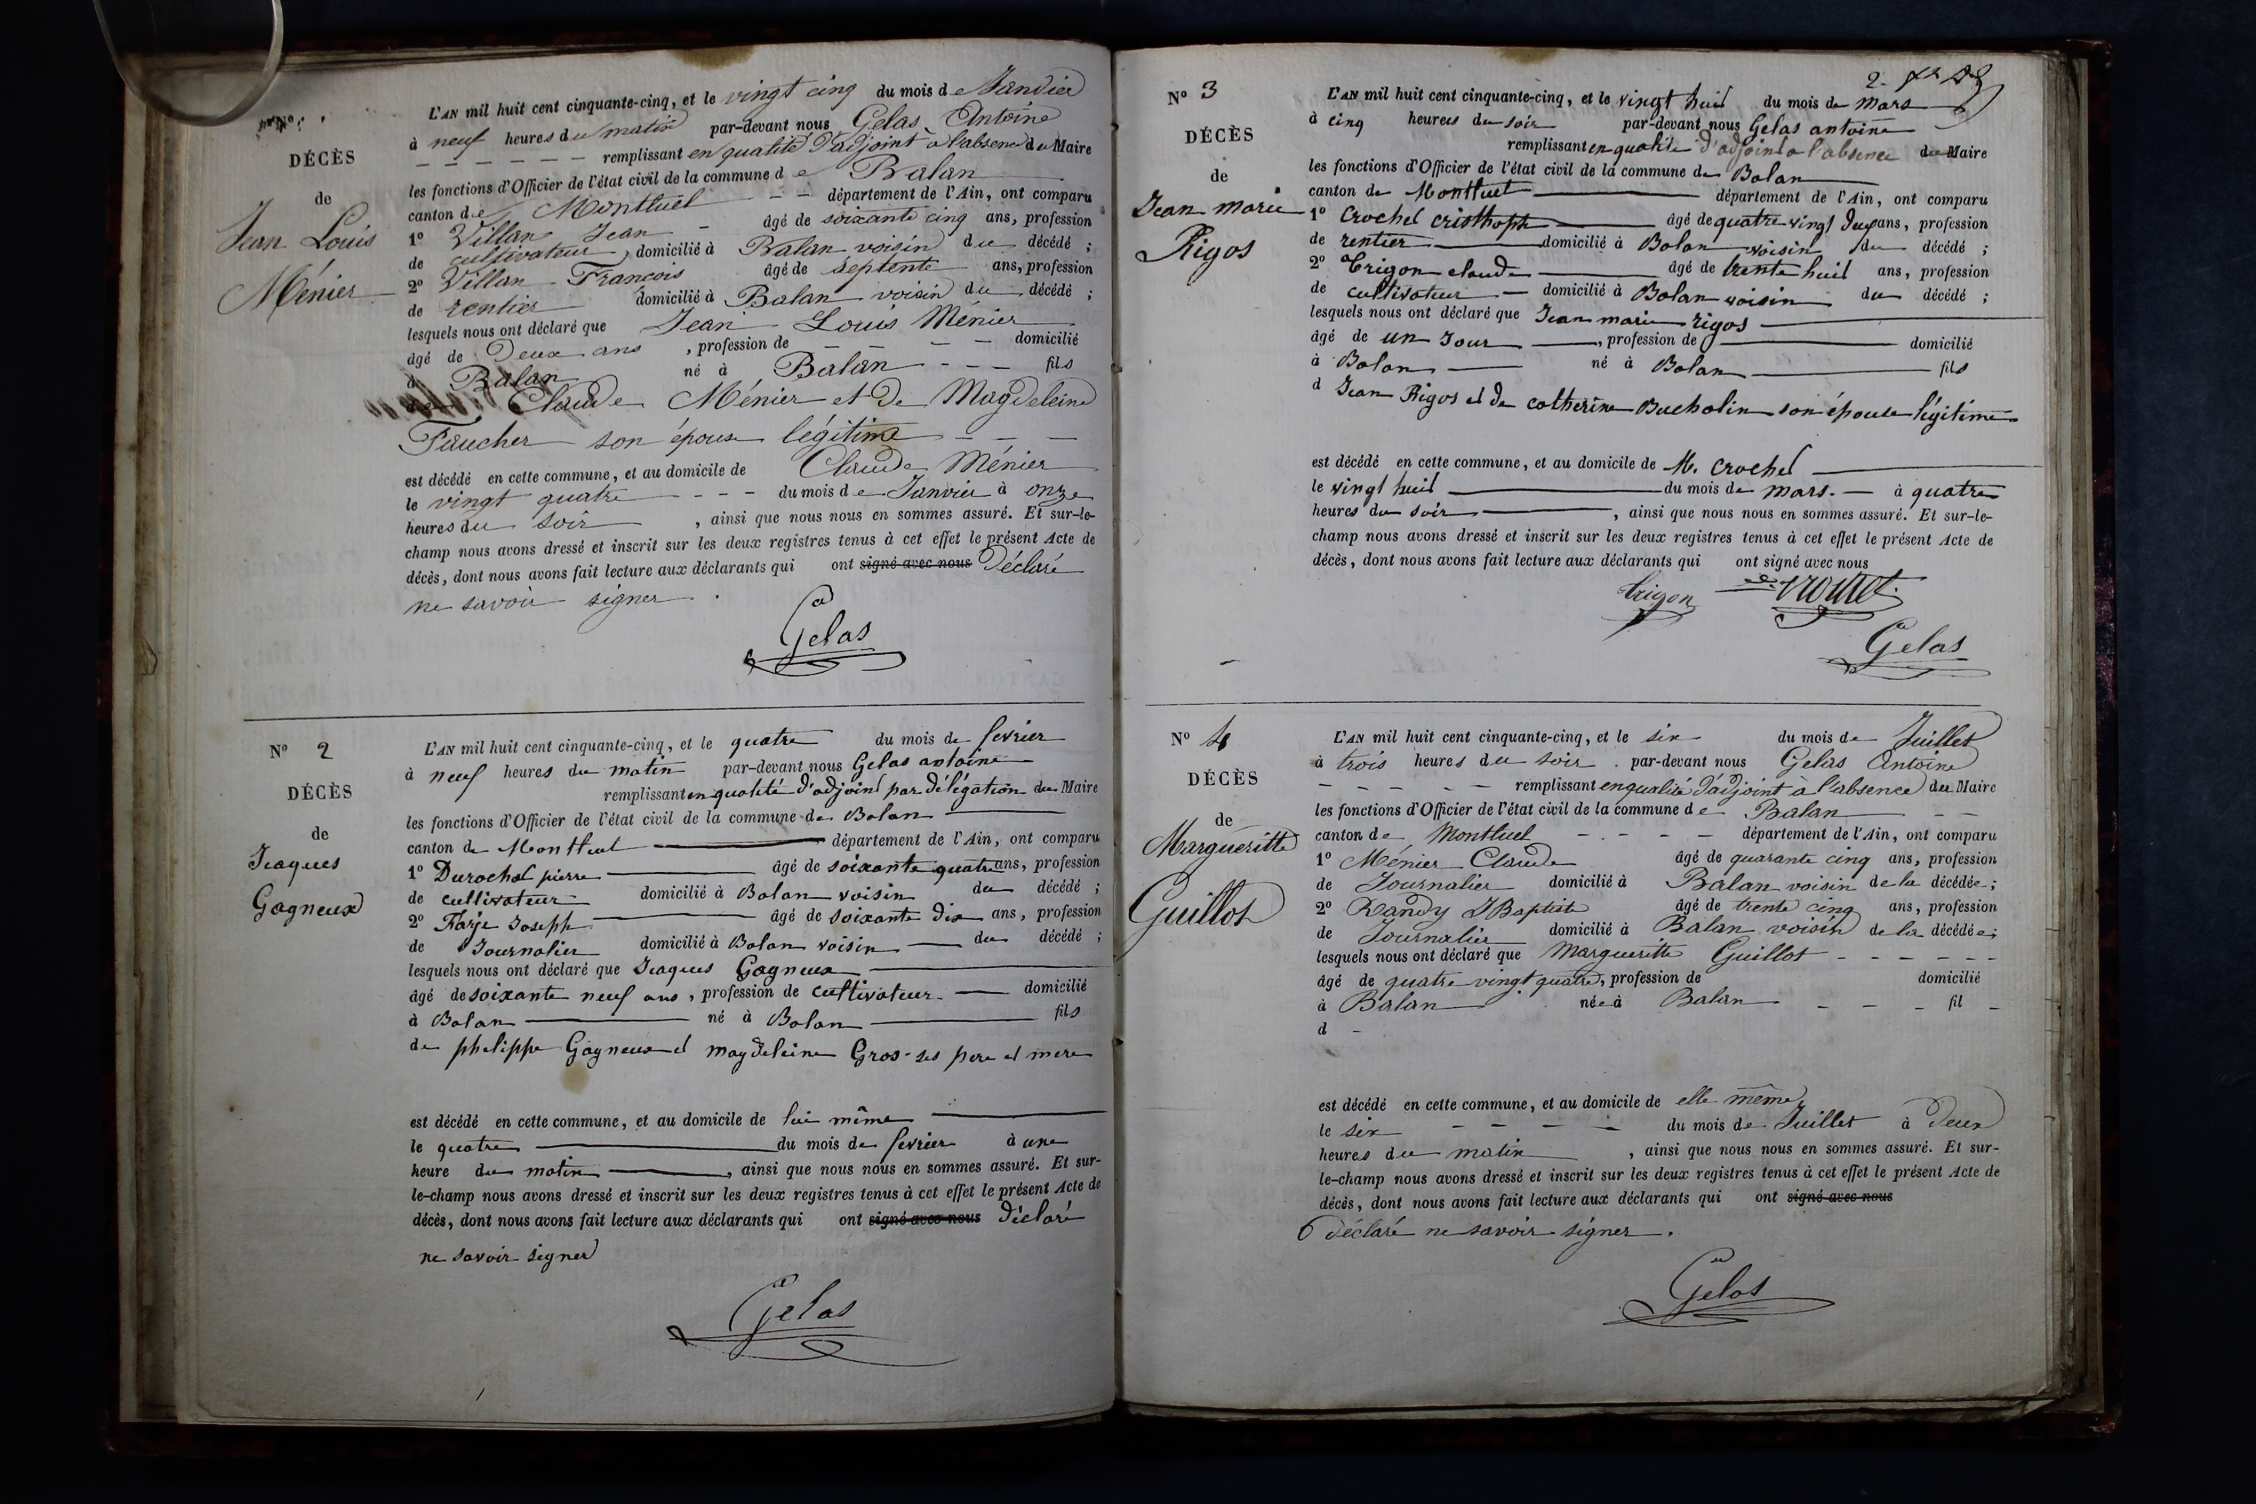 Nº 1
DÉCÈS
de
Jean Louis
Ménier
L'AN mil huit cent cinquante-cinq, et le vingt cinq du mois de Janvier
à neuf heures du matin par-devant nous Gelas Antoine
remplissant en qualité d'adjoint à l'absence du Maire
les fonctions d'Officier de l'état civil de la commune de Balan
canton de Montluel département de l'Ain, ont comparu
1º Villan Jean âgé de soixante cinq ans, profession
de cultivateur, domicilié à Balan voisin du décédé ;
2º Villan François âgé de septente ans, profession
de rentier domicilié à Balan voisin du décédé ;
lesquels nous ont déclaré que Jean Louis Ménier
âgé de Deux ans , profession de domicilié
à Balan né à Balan fils
de Claude Ménier et de Magdeleine
Faucher son épouse légitime
est décédé en cette commune, et au domicile de Claude Ménier
le vingt quatre du mois de Janvier à onze
heures du soir , ainsi que nous nous en sommes assuré. Et sur-le-
champ nous avons dressé et inscrit sur les deux registres tenus à cet effet le présent Acte de
décès, dont nous avons fait lecture aux déclarants qui ont signé avec nous Déclaré
ne savoir signer .
Gelas
Nº 2
DÉCÈS
de
Jcaques
Gagneux
L'AN mil huit cent cinquante-cinq, et le quatre du mois de fevrier
à neuf heures du matin par-devant nous Gelas antoine
remplissant en qualité d'adjoint par délégation du Maire
les fonctions d'Officier de l'état civil de la commune de Balan
canton de Montluel département de l'Ain, ont comparu
1º Durochat pierre âgé de soixante quatre ans, profession
de cultivateur domicilié à Balan voisin du décédé ;
2º Farje Joseph âgé de soixante dix ans, profession
de Journalier domicilié à Balan voisin du décédé ;
lesquels nous ont déclaré que Jcaques Gagneux
âgé de soixante neuf ans , profession de cultivateur domicilié
à Balan né à Balan fils
de philippe Gagneux et magdeleine Gros ses pere et mere
est décédé en cette commune, et au domicile de lui même
le quatre du mois de fevrier à une
heure du matin , ainsi que nous nous en sommes assuré. Et sur-
le-champ nous avons dressé et inscrit sur les deux registres tenus à cet effet le présent Acte de
décès, dont nous avons fait lecture aux déclarants qui ont signé avec nous déclaré
ne savoir signer
Gelas
2.
Nº 3
DÉCÈS
de
Jean marie
Rigos
L'AN mil huit cent cinquante-cinq, et le vingt huit du mois de mars
à cinq heures du soir par-devant nous Gelas antoine
remplissant en qualité d'adjoint a l'absence du Maire
les fonctions d'Officier de l'état civil de la commune de Balan
canton de Montluel département de l'Ain, ont comparu
1º Crochet cristhophe âgé de quatre vingt deux ans, profession
de rentier domicilié à Balan voisin du décédé ;
2º Trigon claude âgé de trente huit ans, profession
de cultivateur domicilié à Balan voisin du décédé ;
lesquels nous ont déclaré que Jean marie rigos
âgé de un Jour , profession de domicilié
à Balan né à Balan fils
d Jean Rigos et de catherine Bucholin son épouse légitime
est décédé en cette commune, et au domicile de M. Crochet
le vingt huit du mois de mars. à quatre
heures du soir , ainsi que nous nous en sommes assuré. Et sur-le-
champ nous avons dressé et inscrit sur les deux registres tenus à cet effet le présent Acte de
décès, dont nous avons fait lecture aux déclarants qui ont signé avec nous
trigon
Gelas
Nº 4
DÉCÈS
de
Margueritte
Guillot
L'AN mil huit cent cinquante-cinq, et le six du mois de Juillet
à trois heures du soir . par-devant nous Gelas Antoine
remplissant en qualité d'adjoint à l'absence du Maire
les fonctions d'Officier de l'état civil de la commune de Balan
canton de Montluel département de l'Ain, ont comparu
1º Ménier Claude âgé de quarante cinq ans, profession
de Journalier domicilié à Balan voisin de la décédée ;
2º Randy J Baptiste âgé de trente cinq ans, profession
de Journalier domicilié à Balan voisin de la décédée ;
lesquels nous ont déclaré que Margueritte Guillot
âgé de quatre vingt quatre, profession de domicilié
à Balan née à Balan fil
d
est décédé en cette commune, et au domicile de elle même
le six du mois de Juillet à Deux
heures du matin , ainsi que nous nous en sommes assuré. Et sur-
le-champ nous avons dressé et inscrit sur les deux registres tenus à cet effet le présent Acte de
décès, dont nous avons fait lecture aux déclarants qui ont signé avec nous
déclaré ne savoir signer .
Gelas